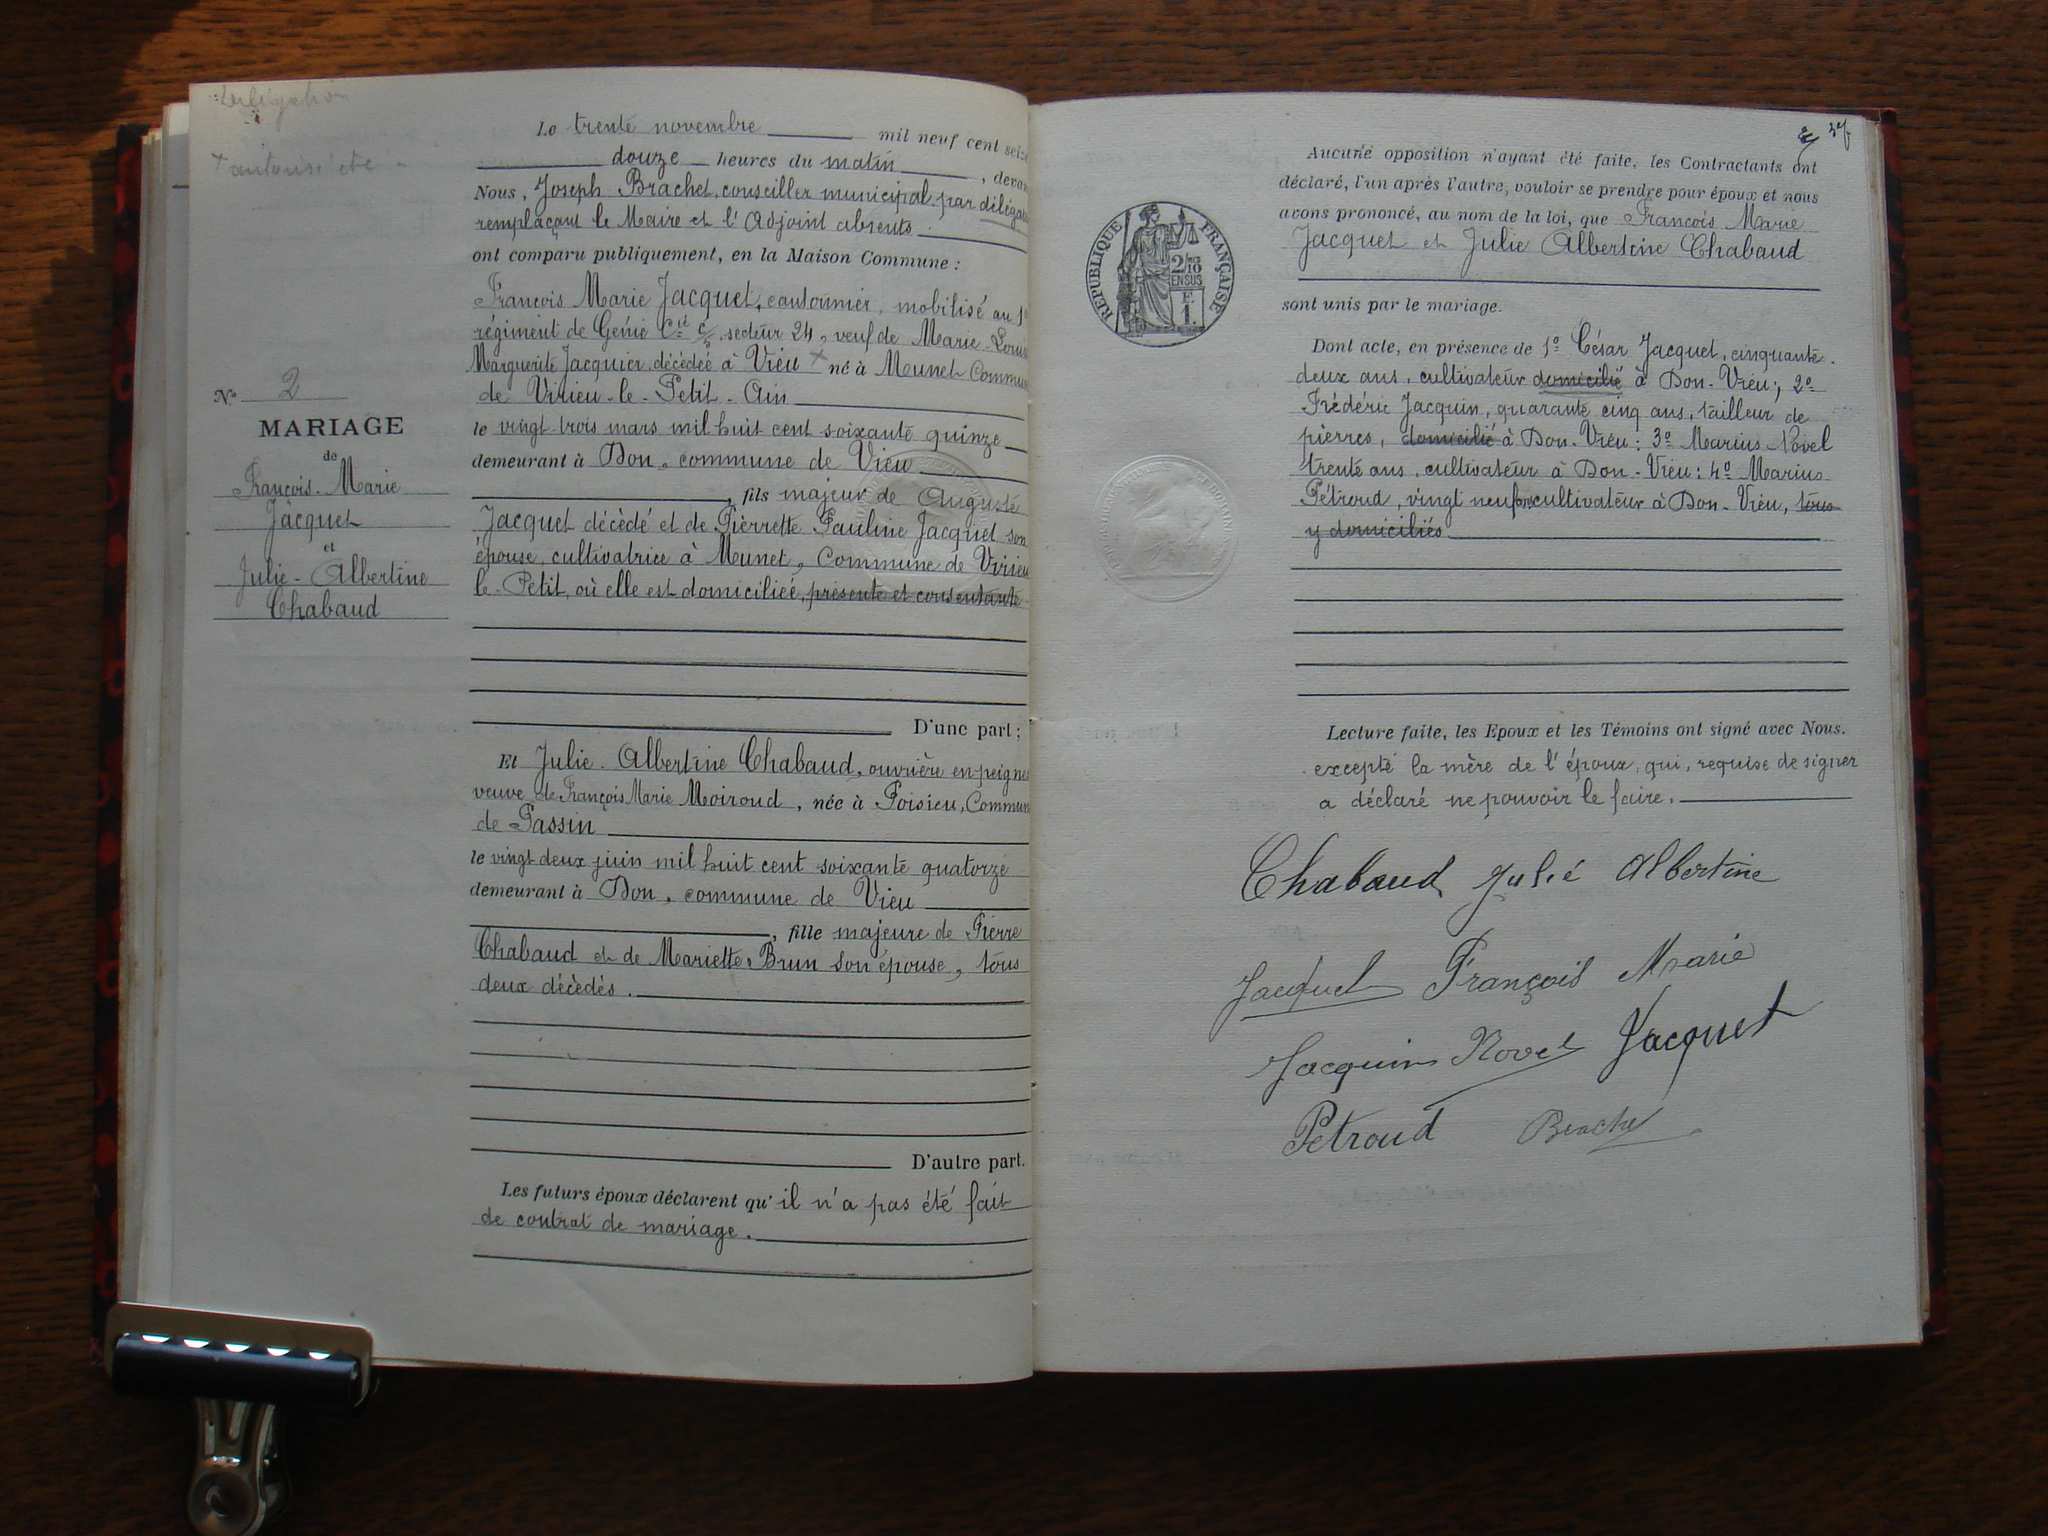 délégation
Le trente novembre mil neuf cent seize
douze heures du matin, devan
Nous, Joseph Brachet, conseiller municipal par délégation
remplaçant le Maire et l'Adjoint absents
ont comparu publiquement, en la Maison Commune :
François Marie Jacquet, cantonnier, mobilisé au
régiment de Génie Cie secteur 24, veuf de Marie-Louise
Marguerite Jacquier, décédée à Vieu + né à Munet Commune
de Virieu-le-Petit-Ain
le vingt-trois mars mil huit cent soixante quinze
demeurant à Don, commune de Vieu
, fils majeur de Auguste
Jacquet décédé et de Pierrette Pauline Jacquet son
épouse, cultivatrice à Munet, Commune de Virieu
le-Petit, où elle est domiciliée, présente et consentante
D'une part ;
Et Julie-Albertine Chabaud, ouvrière en peignes
veuve de François Marie Moiroud, née à Poisieu, Commune
de Passin
le vingt deux juin mil huit cent soixante quatorze
demeurant à Don, commune de Vieu
, fille majeure de Pierre
Chabaud et de Mariette Brun son épouse, tous
deux décédés.
D'autre part.
Les futurs époux déclarent qu'il n'a pas été fait
de contrat de mariage.
N° 2
MARIAGE
de
François-Marie
Jacquet
et
Julie-Albertine
Chabaud
37
Aucune opposition n'ayant été faite, les Contractants ont
déclaré, l'un après l'autre, vouloir se prendre pour époux et nous
avons prononcé, au nom de la loi, que François Marie
Jacquet et Julie Albertine Chabaud
sont unis par le mariage.
RÉPUBLIQUE FRANÇAISE
2/10
EN SUS
F.
1
Dont acte, en présence de 1° César Jacquet, cinquante-
deux ans, cultivateur domicilié à Don-Vieu ; 2°
Frédéric Jacquin, quarante cinq ans, tailleur de
pierres, domicilié à Don-Vieu : 3° Marius Novel
trente ans, cultivateur à Don-Vieu : 4° Marius
Pétroud, vingt neuf ans cultivateur à Don-Vieu, tous
y domiciliés.
Lecture faite, les Epoux et les Témoins ont signé avec Nous.
excepté la mère de l'époux, qui, requise de signer
a déclaré ne pouvoir le faire.
Chabaud Julie Albertine
Jacquet François Marie
Jacquin Novel Jacquet
Pétroud Brachet